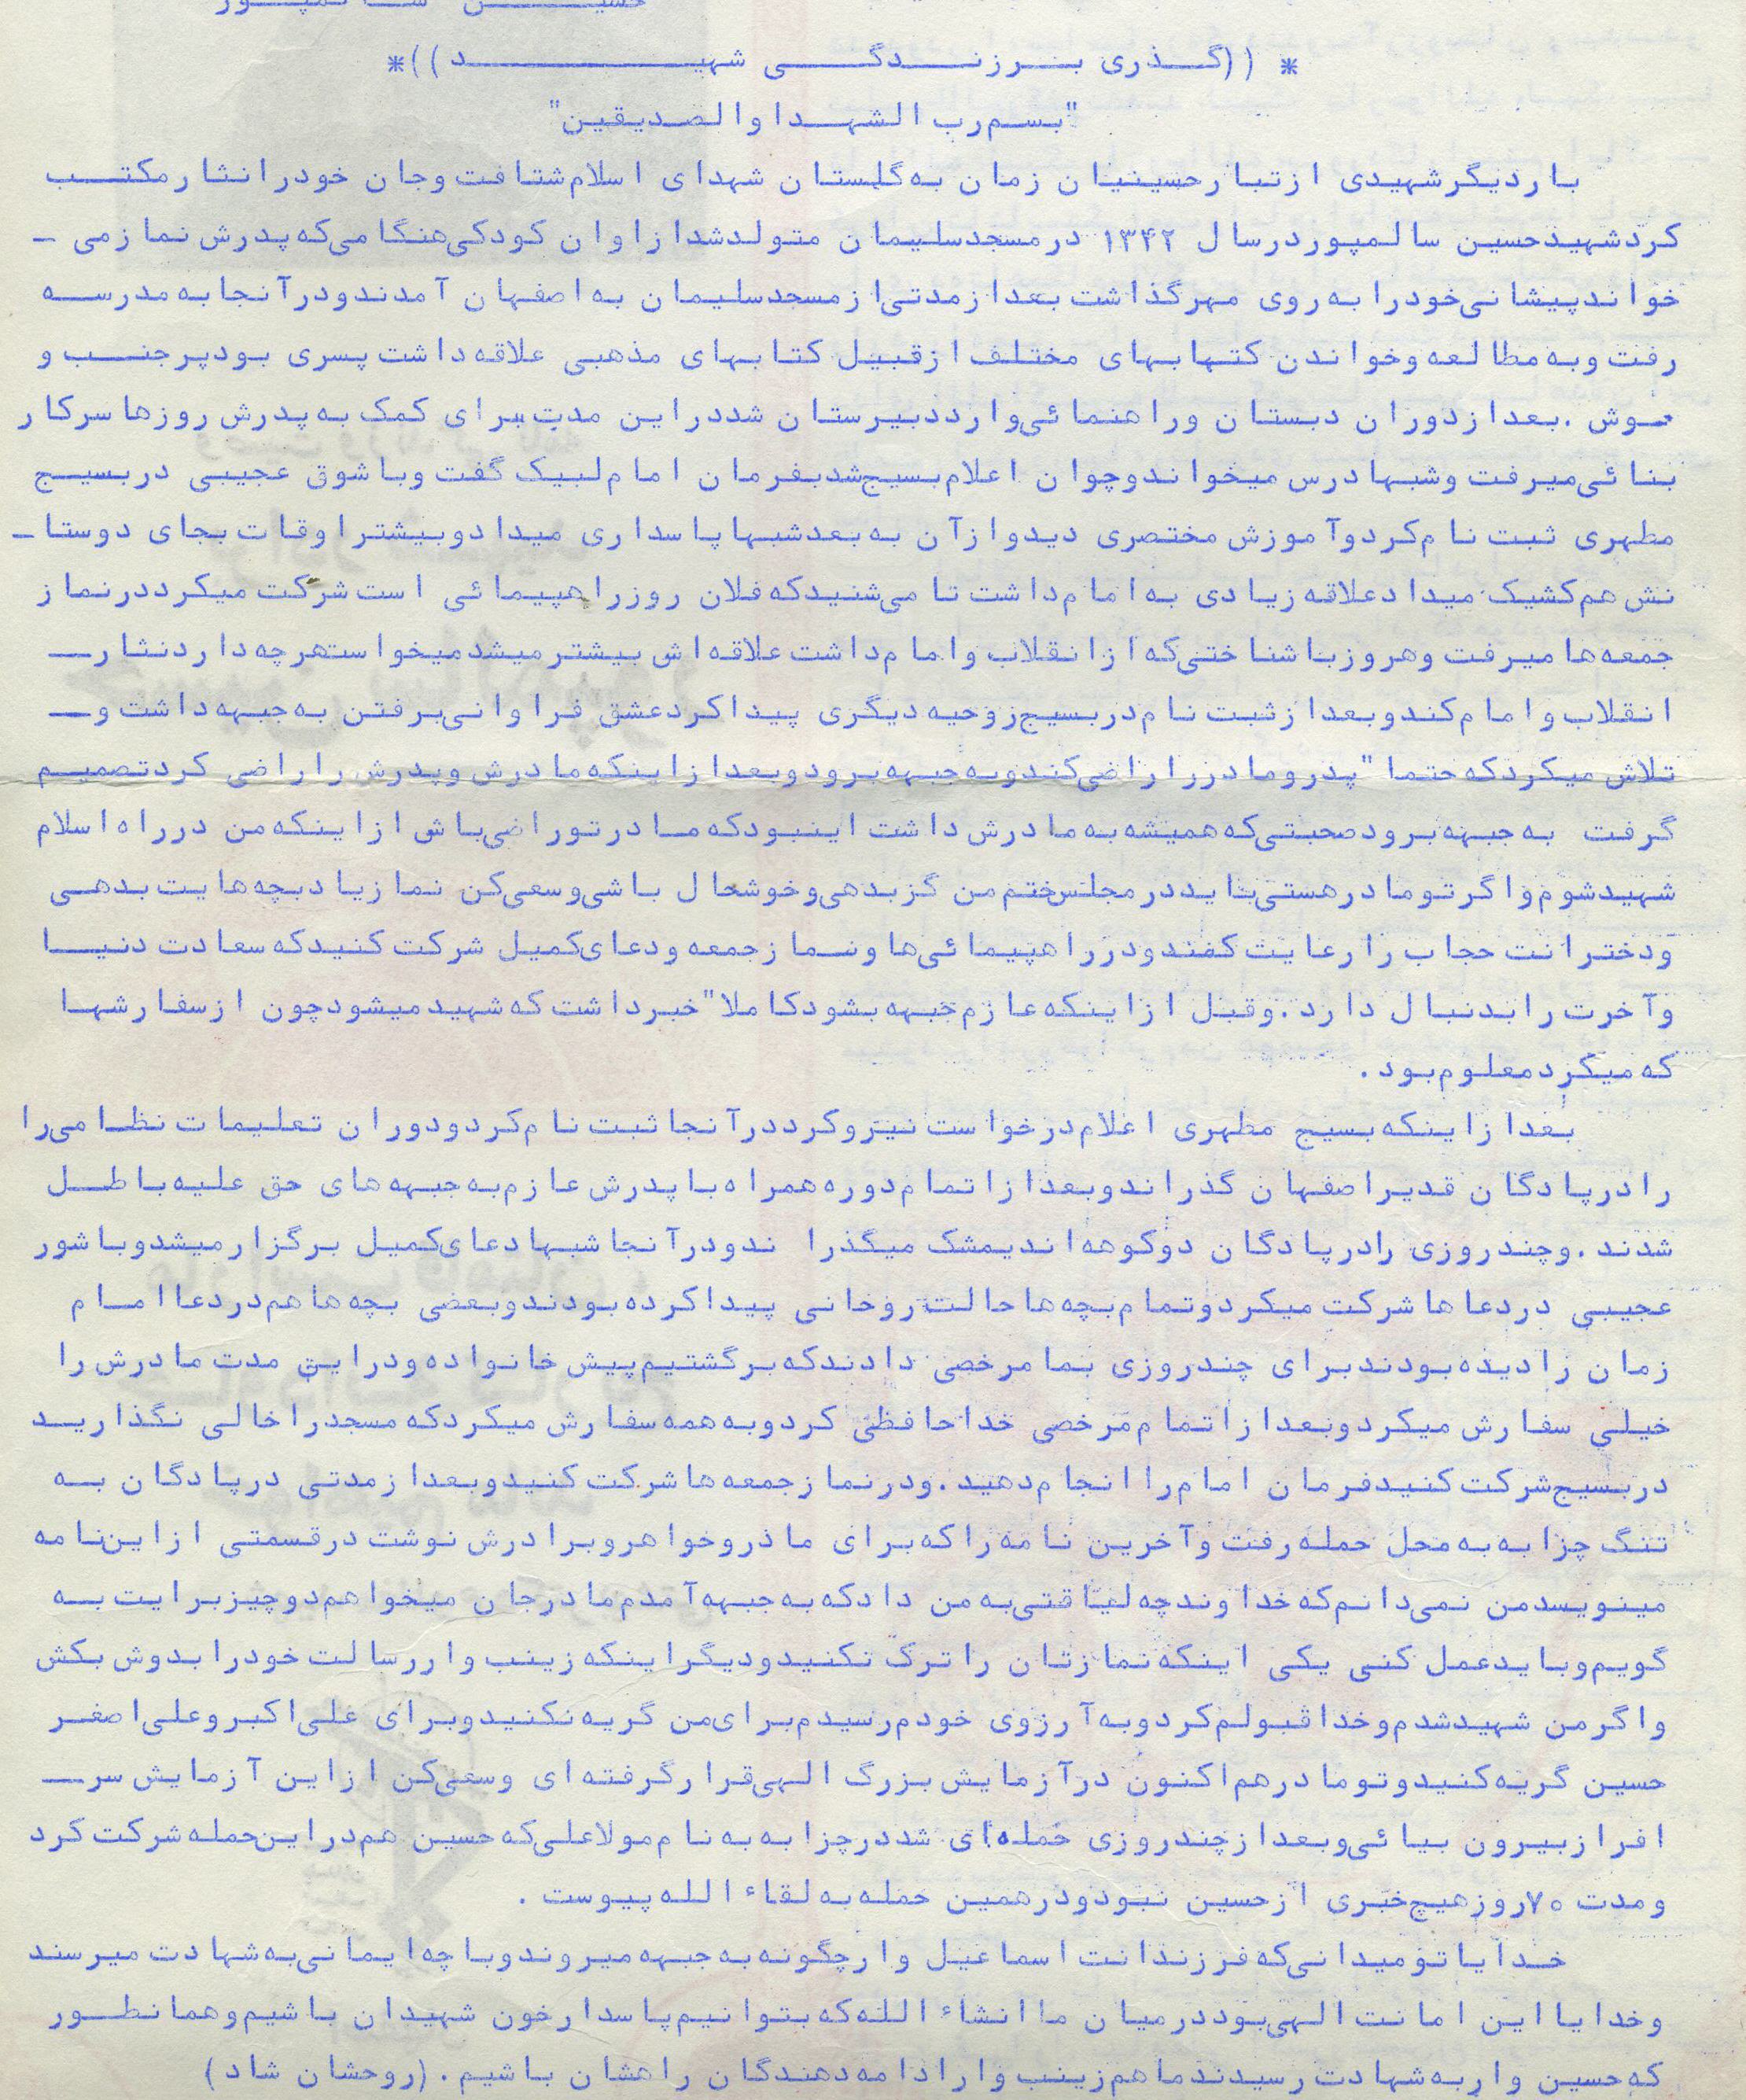 حسین سالمپور
* ((گذری بر زندگی شهید))*
"بسم رب الشهدا والصدیقین"
بار دیگر شهیدی از تبار حسینیان زمان به گلستان شهدای اسلام شتافت و جان خود را نثار مکتب
کرد شهید حسین سالمپور در سال ۱۳۴۲ در مسجد سلیمان متولد شد از اوان کودکی هنگامی که پدرش نماز می -
خواند پیشانی خود را به روی مهر گذاشت بعد از مدتی از مسجد سلیمان به اصفهان آمدند و در آنجا به مدرسه
رفت و به مطالعه و خواندن کتابهای مختلف از قبیل کتابهای مذهبی علاقه داشت پسری بود پر جنب و
جوش . بعد از دوران دبستان و راهنمائی وارد دبیرستان شد در این مدت برای کمک به پدرش روزها سرکار
بنائی میرفت و شبها درس میخواند و چو ان اعلام بسیج شد بفرمان امام لبیک گفت و با شوق عجیبی در بسیج
مطهری ثبت نام کرد و آموزش مختصری دید و از آن به بعد شبها پاسداری میداد و بیشتر اوقات بجای دوستا -
نش هم کشیک میداد علاقه زیادی به امام داشت تا می شنید که فلان روز راهپیمائی است شرکت میکرد در نماز
جمعه ها میرفت و هر روز با شناختی که از انقلاب و امام داشت علاقه اش بیشتر میشد میخواست هر چه دارد نثار -
انقلاب و امام کند و بعد از ثبت نام در بسیج روحیه دیگری پیدا کرد عشق فراوانی برفتن به جبهه داشت و -
تلاش میکرد که حتما " پدر و مادر را راضی کند و به جبهه برود و بعد از اینکه مادرش و پدرش را راضی کرد تصمیم
گرفت به جبهه برود صحبتی که همیشه به مادرش داشت این بود که مادر تو راضی باش از اینکه من در راه اسلام
شهید شوم و اگر تو مادر هستی باید در مجلس ختم من گز بدهی و خوشحال باشی و سعی کن نماز یاد بچه هایت بدهی
و دخترانت حجاب را رعایت کنند و در راهپیمائی ها و نماز جمعه و دعای کمیل شرکت کنید که سعادت دنیا
و آخرت را بدنبال دارد . و قبل از اینکه عازم جبهه بشود کاملا " خبر داشت که شهید میشود چون از سفارشها
که میکرد معلوم بود .
بعد از اینکه بسیج مطهری اعلام درخواست نیرو کرد در آنجا ثبت نام کرد و دوران تعلیمات نظامی را
را در پادگان قدیر اصفهان گذراند و بعد از اتمام دوره همراه با پدرش عازم به جبهه های حق علیه باطل
شدند . و چند روزی را در پادگان دوکوهه اندیمشک میگذرا ندو در آنجا شبها دعای کمیل برگزار میشد و با شور
عجیبی در دعاها شرکت میکرد و تمام بچه ها حالت روحانی پیدا کرده بودند و بعضی بچه ها هم در دعا امام
زمان را دیده بودند برای چند روزی بما مرخصی دادند که برگشتیم پیش خانواده و در این مدت مادرش را
خیلی سفارش میکرد و بعد از اتمام مرخصی خداحافظی کرد و به همه سفارش میکرد که مسجد را خالی نگذارید
در بسیج شرکت کنید فرمان امام را انجام دهید . و در نماز جمعه ها شرکت کنید و بعد از مدتی در پادگان به
تنگ چزابه به محل حمله رفت و آخرین نامه را که برای مادر و خواهر و برادرش نوشت در قسمتی از این نامه
مینویسد من نمی دانم که خداوند چه لیاقتی به من داد که به جبهه آمدم مادر جان میخواهم دو چیز برایت به
گویم و باید عمل کنی یکی اینکه نمازتان را ترک نکنید و دیگر اینکه زینب وار رسالت خود را بدوش بکش
و اگر من شهید شدم و خدا قبولم کرد و به آرزوی خودم رسیدم برای من گریه نکنید و برای علی اکبر و علی اصغر
حسین گریه کنید و تو مادر هم اکنون در آزمایش بزرگ الهی قرار گرفته ای و سعی کن از این آزمایش سر -
افراز بیرون بیائی و بعد از چند روزی حمله ای شد در چزابه به نام مولا علی که حسین هم در این حمله شرکت کرد
و مدت ۷۰ روز هیچ خبری از حسین نبود و در همین حمله به لقاء الله پیوست .
خدایا تو میدانی که فرزندانت اسماعیل وار چگونه به جبهه میروند و با چه ایمانی به شهادت میرسند
و خدایا این امانت الهی بود در میان ما انشاء الله که بتوانیم پاسدار خون شهیدان باشیم و همانطور
که حسین وار به شهادت رسیدند ما هم زینب وار ادامه دهندگان راهشان باشیم . (روحشان شاد)